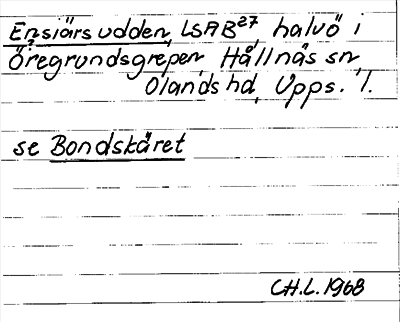 Ensiärsudden, LSAB27, halvö i
Öregrundsgrepen, Hållnäs sn,
Olands hd, Upps. l.
se Bondskäret
C.H.L. 1968